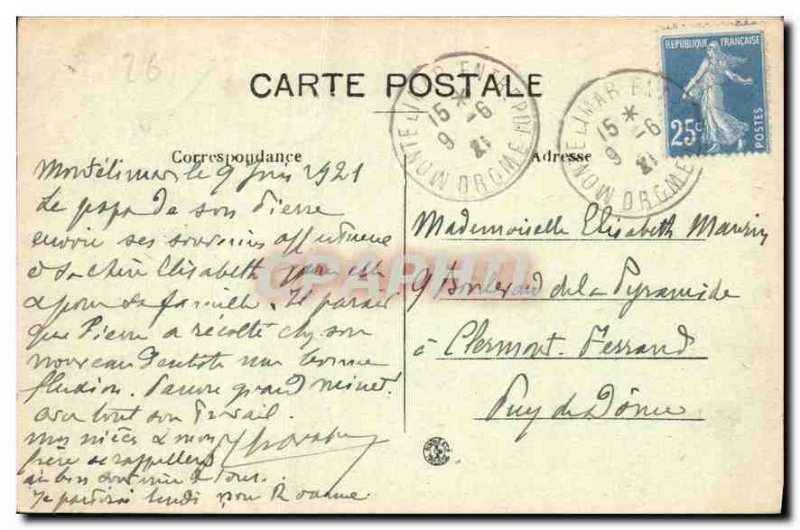 26
CARTE POSTALE
REPUBLIQUE FRANÇAISE
25c
POSTES
MONTELIMAR ENTREPOT
15 * 9 -6 21
DROME
MONTELIMAR ENTREPOT
15 * 9 -6 21
DROME
Correspondance
Adresse
Montélimar le 9 Juin 1921
Le papa de son Pierre
envoie ses souvenirs
à sa chère Elisabeth
a pour sa famille. Il parait
que Pierre a récolté chez son
nouveau Dentiste une bonne
fluxion. Pauvre grand minet!
avec tout son travail.
mes nièces & mon
frère se rappellent
au bon souvenir de tous.
Je partirai lundi pour Roanne.
Mademoiselle Elisabeth
9 Boulevard de la Pyramide
à Clermont-Ferrand
Puy de Dôme
CPAPHIL